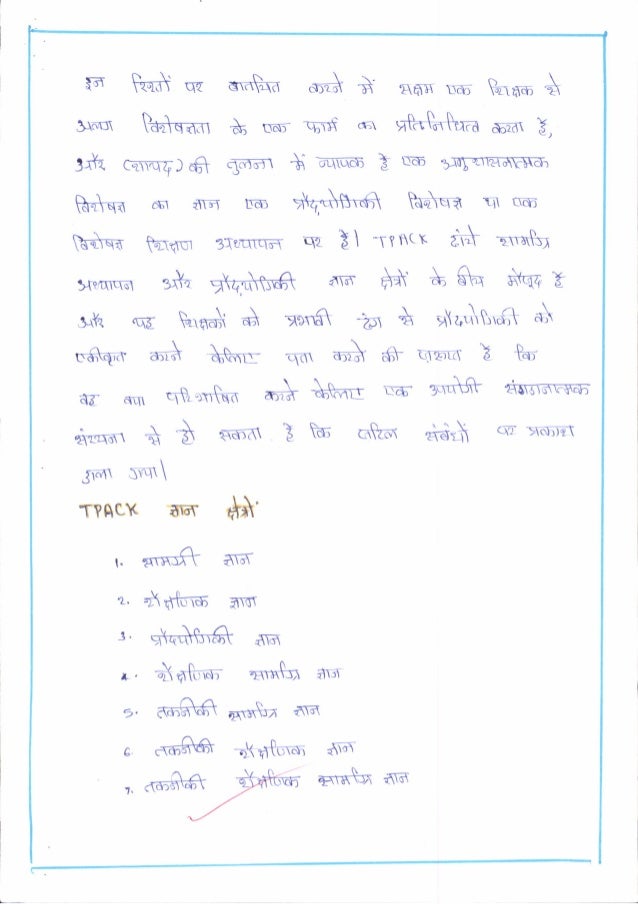 इन रिश्तों पर बातचित करने में सक्षम एक शिक्षक से
अलग विशेषज्ञता के एक फार्म का प्रतिनिधित्व करता है,
और (शायद) की तुलना में व्यापक है एक अनुशासनात्मक
विशेषज्ञ का ज्ञान एक प्रौद्योगिकी विशेषज्ञ या एक
विशेषज्ञ शिक्षण अध्यापन पर है। TPACK ढांचे सामग्रि
अध्यापन और प्रौद्योगिकी ज्ञान क्षेत्रों के बीच मौजूद हैं
और यह शिक्षकों को प्रभावी ढंग से प्रौद्योगिकी को
एकीकृत करने केलिए पता करने की ज़रूरत है कि
वह क्या परिभाषित करने केलिए एक उपयोगी संगठनात्मक
संरचना से हो सकता है कि जटिल संबंधों पर प्रकाश
डाला गया।
TPACK ज्ञान क्षेत्रों
1. सामग्री ज्ञान
2. शैक्षणिक ज्ञान
3. प्रौद्योगिकी ज्ञान
4. शैक्षणिक सामग्रि ज्ञान
5. तकनीकी सामग्रि ज्ञान
6 तकनीकी शैक्षणिक ज्ञान
7. तकनीकी शैक्षणिक सामग्रि ज्ञान